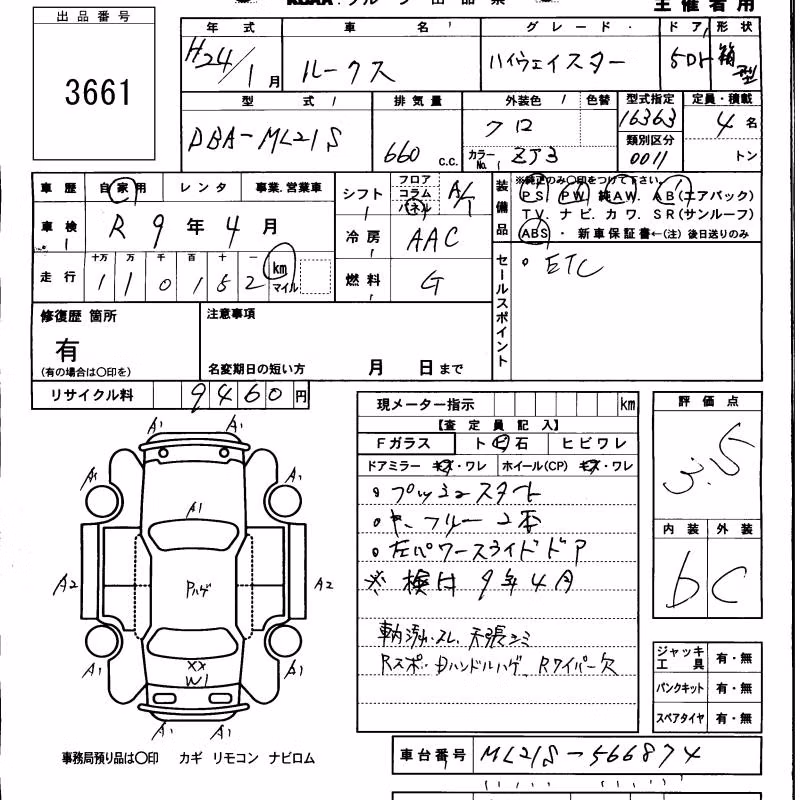 主催者用
出品番号
3661
年式 車名 グレード ドア 形状
H24/1月 ルークス ハイウェイスター 5Dr 箱型
型式 排気量 外装色 色替 型式指定 定員・積載
DBA-ML21S 660 C.C. クロ 16363 4名
カラーNo. ZJ3 類別区分 0011 トン
車歴 自家用 レンタ 事業.営業車
シフト フロア コラム パネル A/T
装備品 ※純正のみ〇印をつけて下さい。
PS PW 純AW. AB(エアバック)
TV. ナビ. カワ. SR(サンルーフ)
ABS ・ 新車保証書←(注) 後日送りのみ
車検 R9年4月
冷房 AAC
走行 十万 万 千 百 十 一 km マイル
110152
燃料 G
セールスポイント
。ETC
修復歴 箇所
有
(有の場合は〇印を)
注意事項
名変期日の短い方 月 日まで
リサイクル料 9460円
現メーター指示 km
【査定員記入】
Fガラス トビ石 ヒビワレ
ドアミラー キズ・ワレ ホイール(CP) キズ・ワレ
。プッシュスタート
。キーフリー2本
。左パワースライドドア
※検は9年4月
天張シミ
Rスポ・Dハンドルハゲ、Rワイパー欠
評価点
3.5
内装 外装
b C
ジャッキ工具 有・無
パンクキット 有・無
スペアタイヤ 有・無
A1 A1
A1 A1
A1
A2 Pハゲ A2
XX
W1
A1 A1
A1 A1
事務局預り品は〇印 カギ リモコン ナビロム
車台番号 ML21S-566874